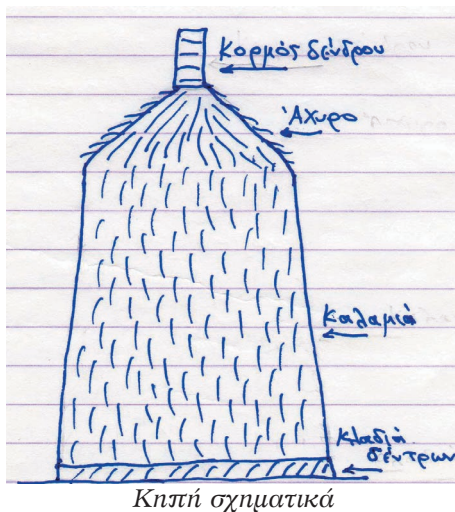 Κορμός δένδρου
Άχυρο
Καλαμιά
Κλαδιά
δέντρων
Κηπή σχηματικά